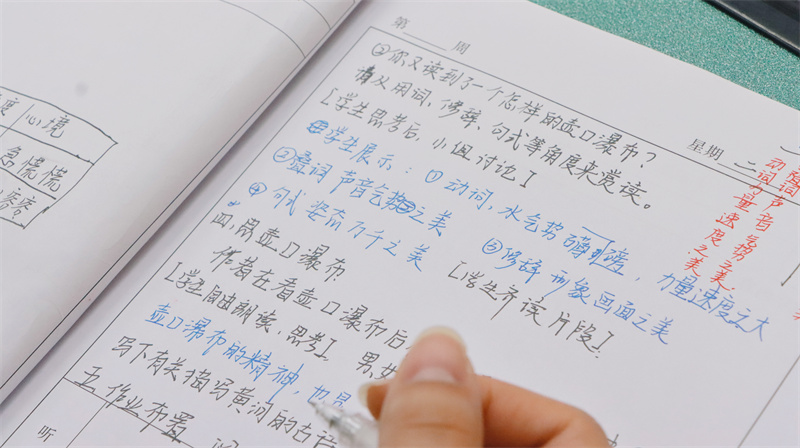 第 周
星期 二
②你又读到了一个怎样的壶口瀑布？
请从用词、修辞、句式等角度来赏读。
[学生思考后，小组讨论]
学生展示：①动词，水气势 力量速度之大
②叠词 声音气势之美 ③修辞 形象画面之美
④句式 姿态万千之美 [学生齐读片段]
四、思壶口瀑布
作者在看壶口瀑布后
[学生自由朗读，思考]，男
壶口瀑布的精神，
写下有关描写黄河的古诗
五、作业布置
听
叠词 声音气势之美
动词 力量速度之美
度 心境
急 慌慌